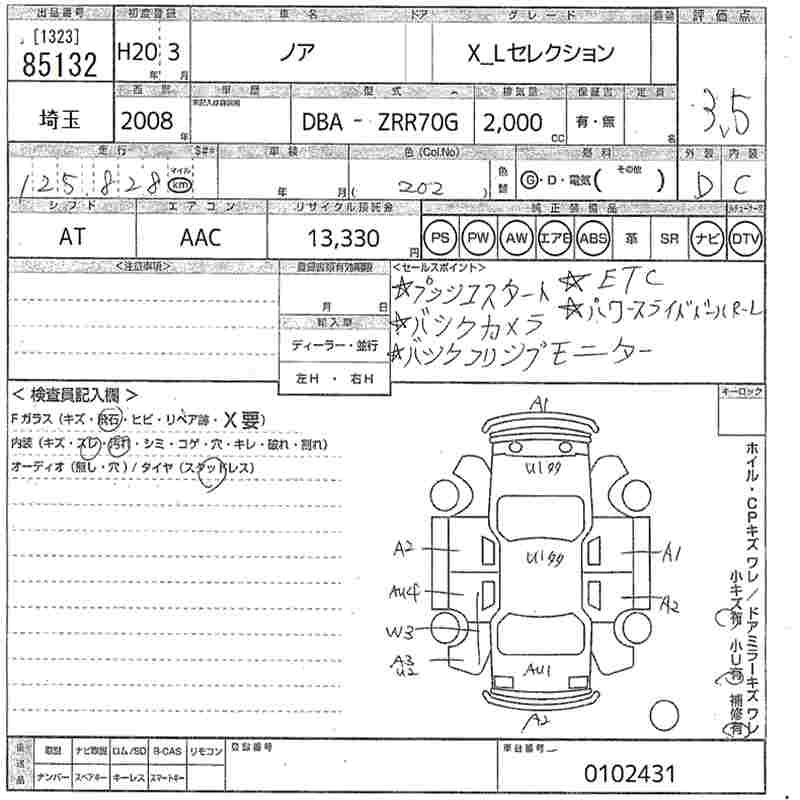 出品番号 初度登録 車名 ドア グレード 装備 評価点
[1323] 85132 H20年 3月 ノア X_Lセレクション 3.5
西暦 車歴 型式 排気量 保証書 定員
埼玉 2008年 DBA - ZRR70G 2,000cc 有・無 名
走行 車検 色(Col.No) 色替 燃料 外装 内装
125,828 マイル km 年 月 (202) G・D・電気(その他) D C
シフト エアコン リサイクル預託金 純正装備品
AT AAC 13,330円 PS PW AW エアB ABS 革 SR ナビ DTV
<注意事項> 登録書類有効期限 <セールスポイント>
月 日 ☆プッシュスタート ☆ETC
輸入車 ☆バックカメラ ☆パワースライドドアR-L
ディーラー・並行 ☆バックフリップモニター
左H・右H
<検査員記入欄> キーロック
Fガラス(キズ・飛石・ヒビ・リペア跡・X要)
内装(キズ・スレ・汚れ・シミ・コゲ・穴・キレ・破れ・割れ)
オーディオ(無し・穴)/タイヤ(スタッドレス)
A1
U199
A2 U199 A1
AU4 A2
W3
A3
U2 AU1
A2
ホイル・CPキズ ワレ/ドアミラーキズ ワレ
小キズ有 小U有 補修有
後送品 取説 ナビ取説 ロム/SD B-CAS リモコン 登録番号 車台番号
ナンバー スペアキー キーレス スマートキー 0102431